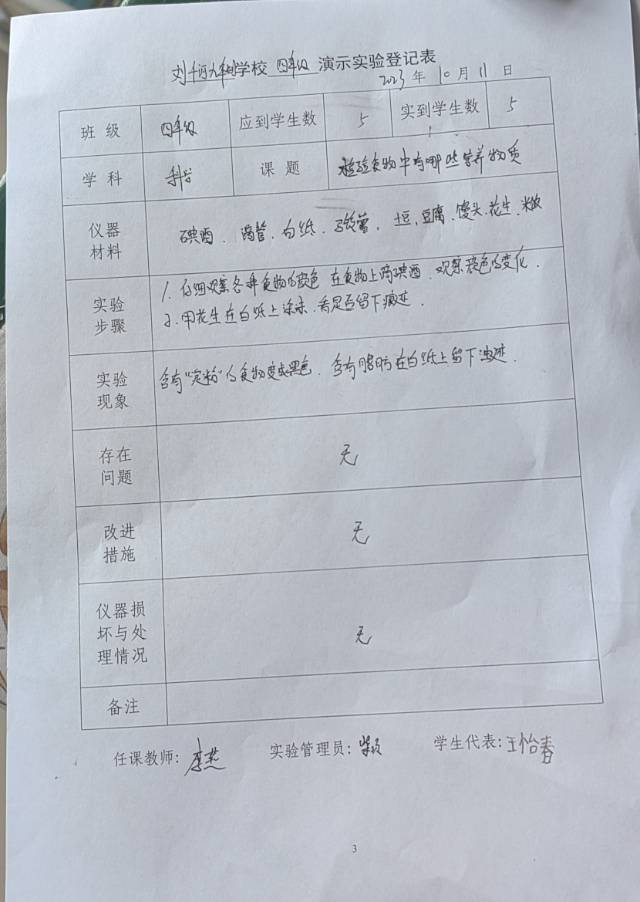 学校 四年级 演示实验登记表
2023年10月11日
班级 四年级 应到学生数 5 实到学生数 5
学科 科学 课题 检验食物中有哪些营养物质
仪器材料 碘酒、滴管、白纸、 土豆、豆腐、馒头、花生、米饭
实验步骤 1. 仔细观察各种食物的颜色 在食物上滴碘酒、观察颜色的变化.
2. 用花生在白纸上涂 . 看是否留下痕迹.
实验现象 含有"淀粉"的食物变成黑色. 含有脂肪在白纸上留下油迹.
存在问题 无
改进措施 无
仪器损坏与处理情况 无
备注
任课教师: 李燕 实验管理员: 学生代表: 王怡春
3